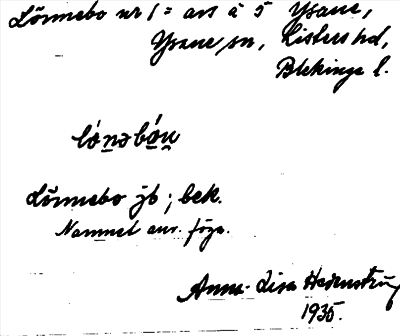 Lönnebo nr 1 = avs å 5 Ysane,
Ysane sn, Listers hd,
Blekinge l.
Lönnebo jb ; bek.
Namnet anv. föga.
Anna-Lisa Hedenström
1935.